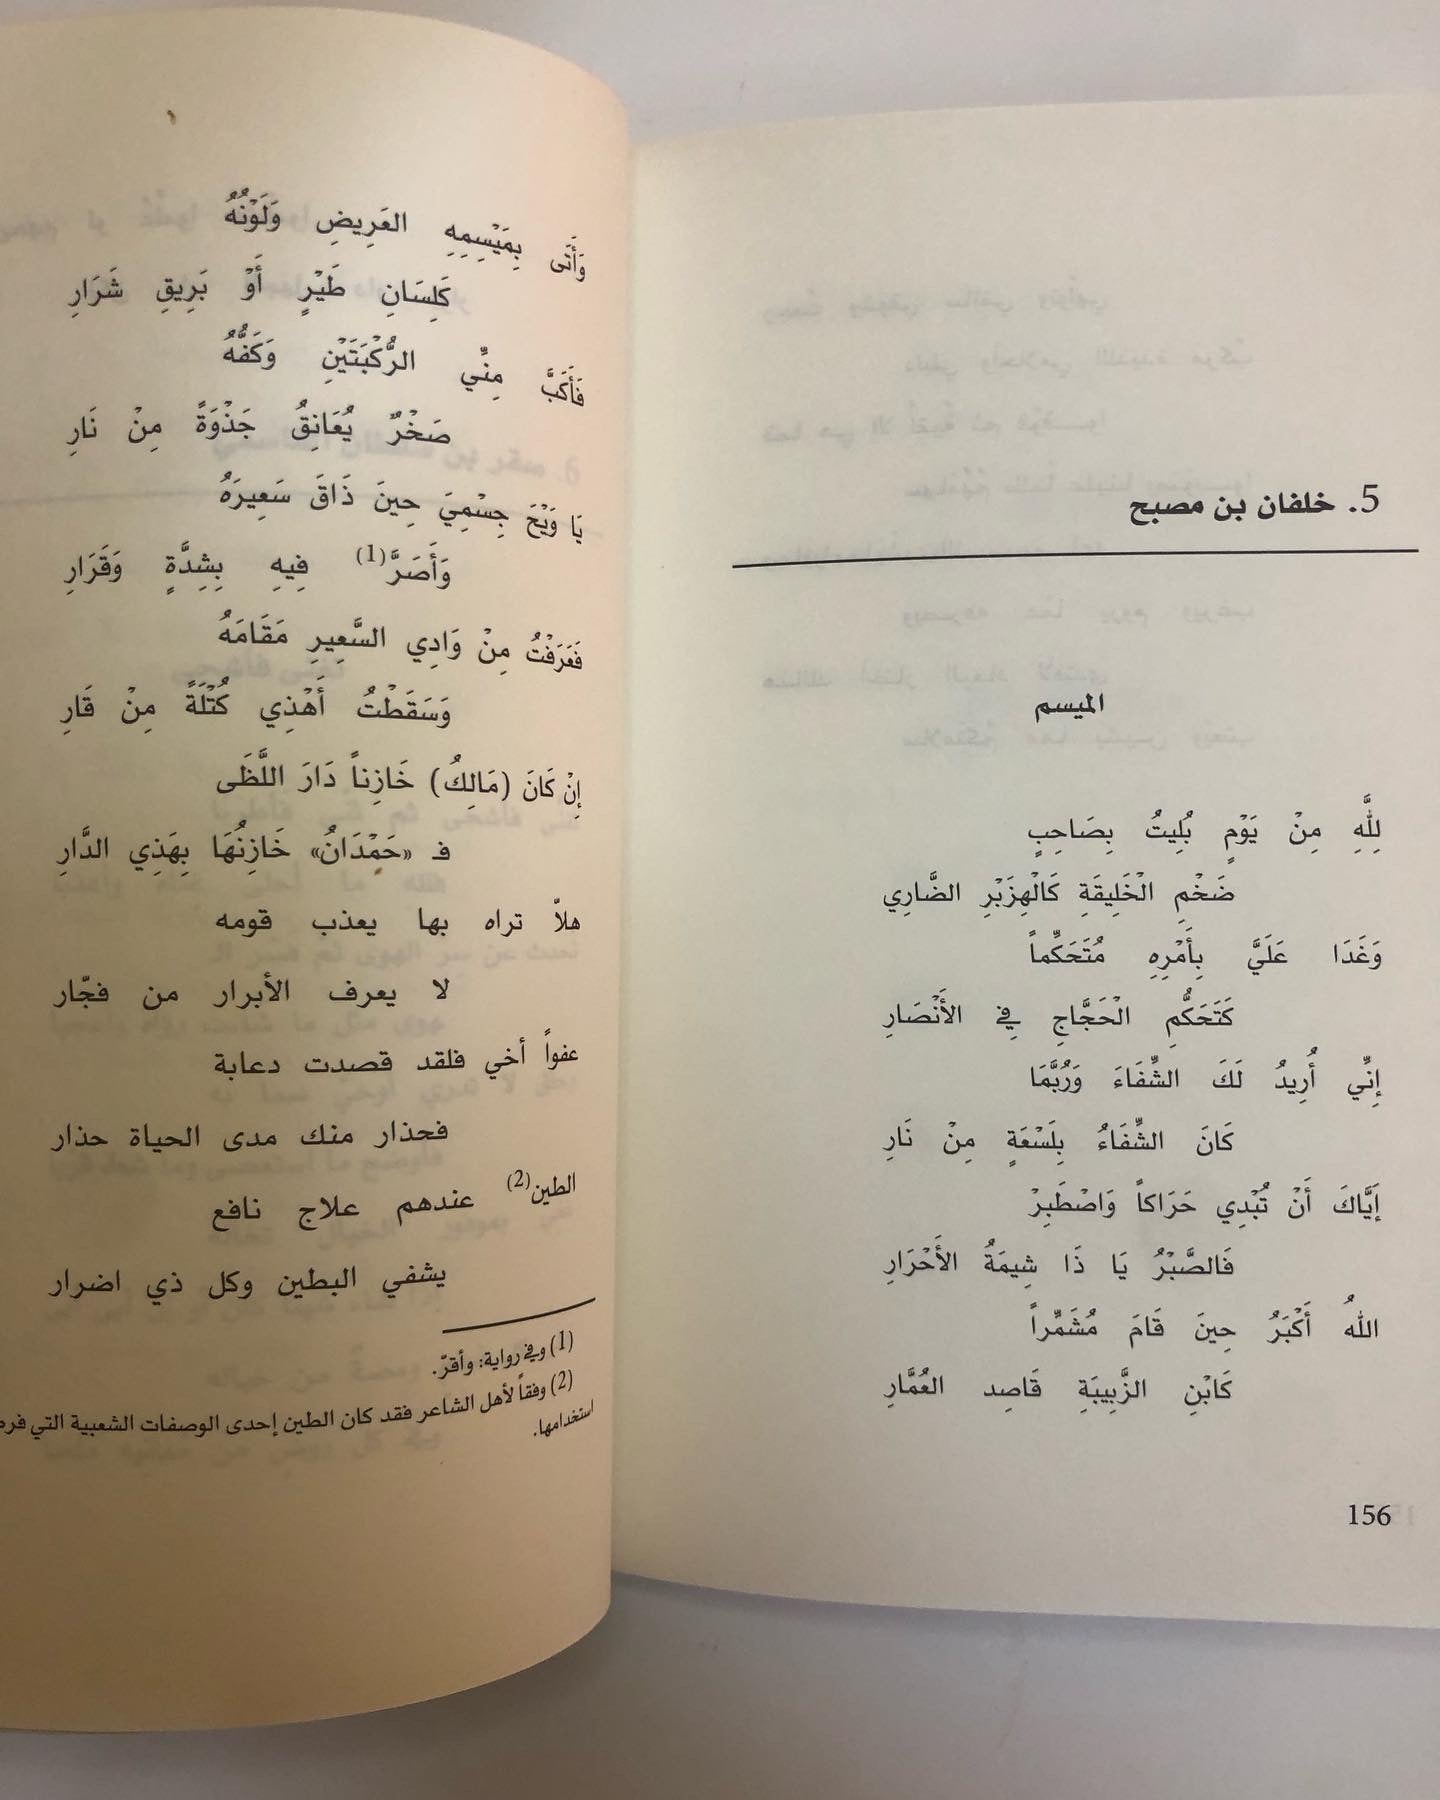 5. خلفان بن مصبح
الميسم
لِلَّهِ مِنْ يَوْمٍ بُلِيتُ بِصَاحِبٍ
ضَخْمِ الْخَلِيقَةِ كَالْهِزَبْرِ الضَّارِي
وَغَدَا عَلَيَّ بِأَمْرِهِ مُتَحَكِّماً
كَتَحَكُّمِ الْحَجَّاجِ فِي الأَنْصَارِ
إِنِّي أُرِيدُ لَكَ الشِّفَاءَ وَرُبَّمَا
كَانَ الشِّفَاءُ بِلَسْعَةٍ مِنْ نَارِ
إَيَّاكَ أَنْ تُبْدِي حَرَاكاً وَاصْطَبِرْ
فَالصَّبْرُ يَا ذَا شِيمَةُ الأَحْرَارِ
اللهُ أَكْبَرُ حِينَ قَامَ مُشَمِّراً
كَابْنِ الزَّبِيبَةِ قَاصِدِ العُمَّارِ
156
وَأَتَى بِمَيْسِمِهِ العَرِيضِ وَلَوْنُهُ
كَلِسَانِ طَيْرٍ أَوْ بَرِيقِ شَرَارِ
فَأَكَبَّ مِنِّي الرُّكْبَتَيْنِ وَكَفُّهُ
صَخْرٌ يُعَانِقُ جَذْوَةً مِنْ نَارِ
يَا وَيْحَ جِسْمِيَ حِينَ ذَاقَ سَعِيرَهُ
وَأَصَرَّ(1) فِيهِ بِشِدَّةٍ وَقَرَارِ
فَعَرَفْتُ مِنْ وَادِي السَّعِيرِ مَقَامَهُ
وَسَقَطْتُ أَهْذِي كُتْلَةً مِنْ قَارِ
إِنْ كَانَ (مَالِكُ) خَازِناً دَارَ اللَّظَى
فـ «حَمْدَانُ» خَازِنُهَا بِهَذِي الدَّارِ
هلاّ تراه بها يعذب قومه
لا يعرف الأبرار من فجّار
عفواً أخي فلقد قصدت دعابة
فحذار منك مدى الحياة حذار
الطين(2) عندهم علاج نافع
يشفي البطين وكل ذي اضرار
(1) وفي رواية: وأقرّ.
(2) وفقاً لأهل الشاعر فقد كان الطين إحدى الوصفات الشعبية التي
استخدامها.